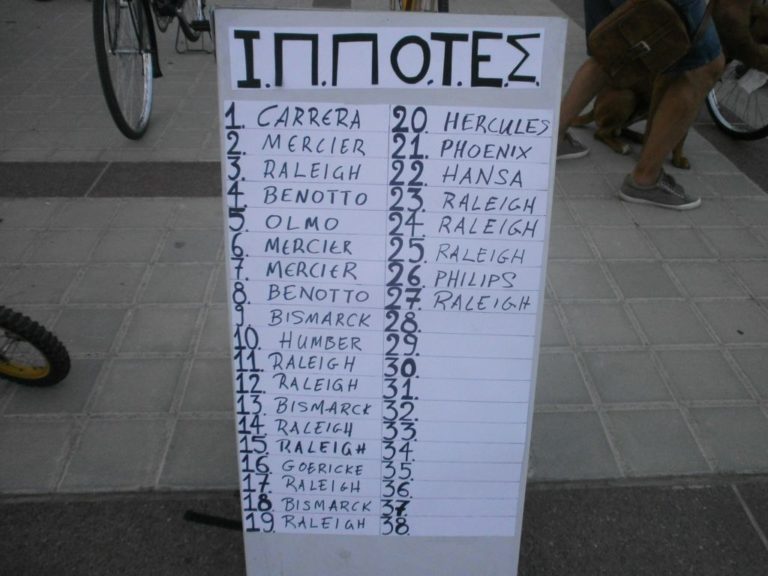 Ι.Π.Π.Ο.Τ.Ε.Σ.
1. CARRERA
2. MERCIER
3. RALEIGH
4. BENOTTO
5. OLMO
6. MERCIER
7. MERCIER
8. BENOTTO
9. BISMARCK
10. HUMBER
11. RALEIGH
12. RALEIGH
13. BISMARCK
14. RALEIGH
15. RALEIGH
16. GOERICKE
17. RALEIGH
18. BISMARCK
19. RALEIGH
20. HERCULES
21. PHOENIX
22. HANSA
23. RALEIGH
24. RALEIGH
25. RALEIGH
26. PHILIPS
27. RALEIGH
28.
29.
30.
31.
32.
33.
34.
35.
36.
37.
38.